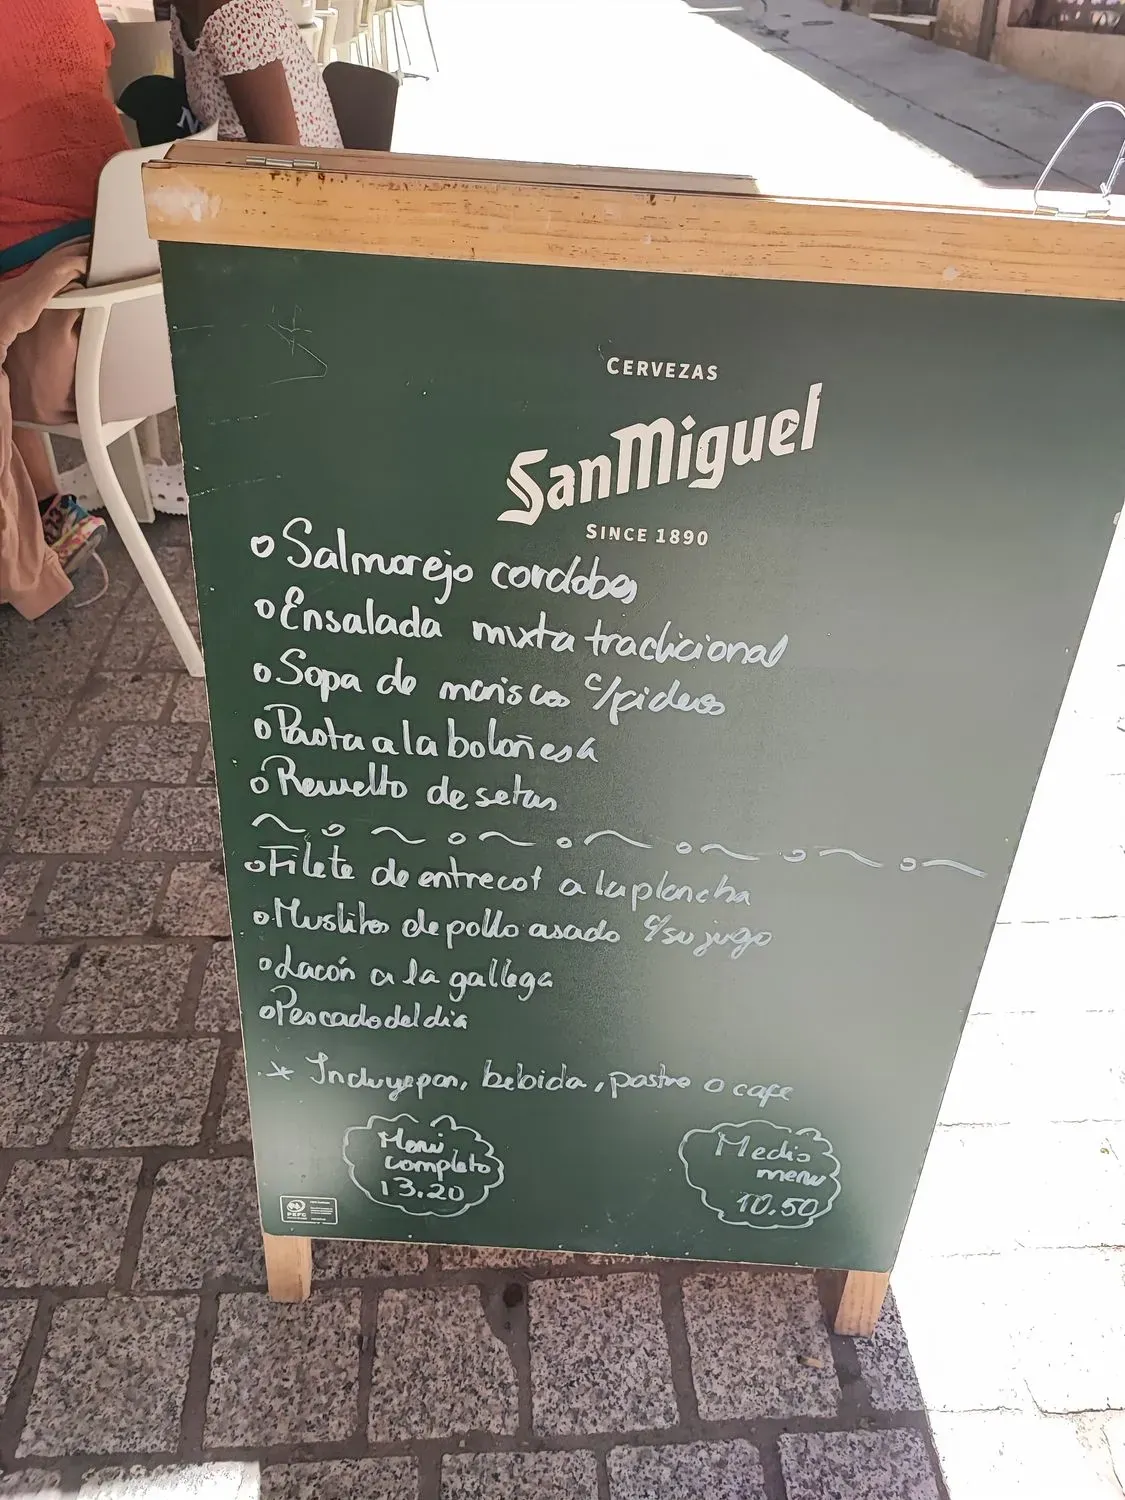 CERVEZAS
SanMiguel
SINCE 1890
Salmorejo cordobes
Ensalada mixta tradicional
Sopa de mariscos c/fideos
Pasta a la boloñesa
Revuelto de setas
Filete de entrecot a la plancha
Muslitos de pollo asado c/su jugo
Lacón a la gallega
Pescado del dia
* Incluye pan, bebida, postre o cafe
Menú completo 13.20
Medio menu 10,50
PEFC